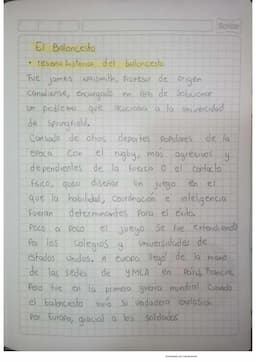 El Baloncesto
• reseña historia del baloncesto
Fue james naismith, Profesor de origen
canadiense, encargado en 1891 de solucionar
un problema que acuciaba a la universidad
de Springfield.
Cansado de otros deportes populares de la
epoca Con el rugby, mas agresivos y
dependientes de la fuerza o el contacto
fisico, quiso diseñar un juego en el
que la habilidad, Coordinación e inteligencia
fueran determinantes Para el exito.
Poco a Poco el juego se fue extendiendo
Por los colegios y universidades de
estados unidos. A europa llego de la mano
de las sedes de YMCA en Paris, Francia
Pero fue en la primera guerra mundial cuando
el baloncesto vivió su verdadera explosion
Por Europa, gracias a los soldados